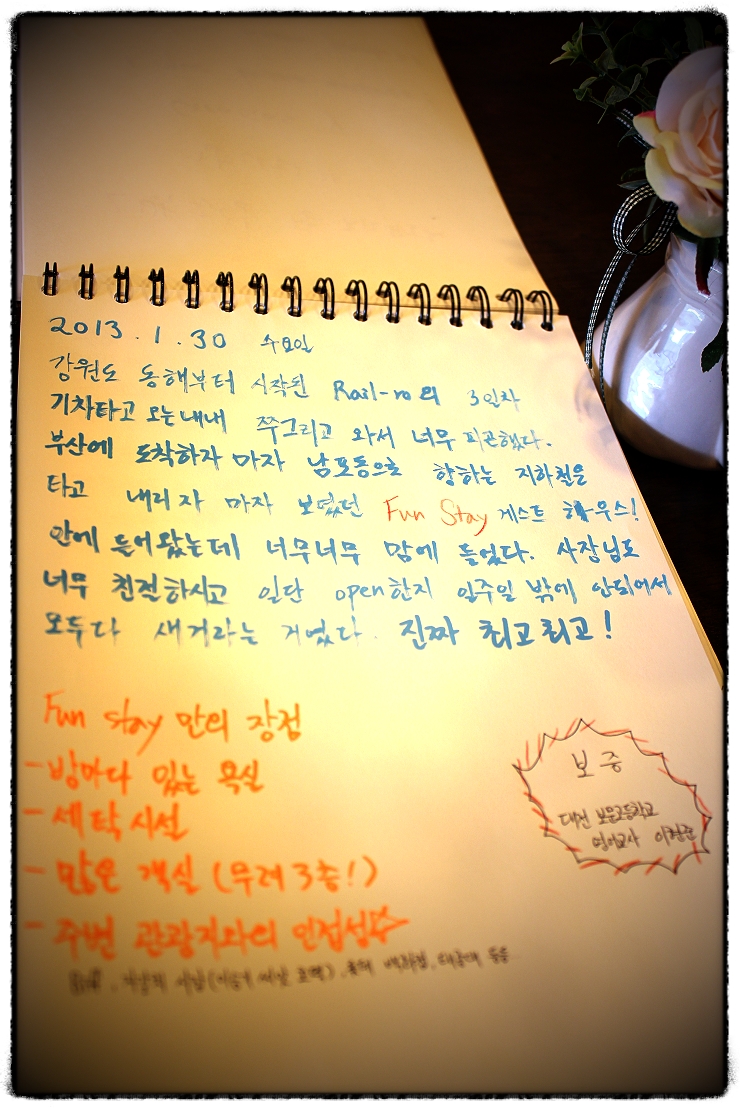 2013.1.30 수요일
강원도 동해부터 시작된 Rail-ro의 3일차
기차타고 오는내내 쭈그리고 와서 너무 피곤했다.
부산에 도착하자 마자 남포동으로 향하는 지하철을
타고 내리자 마자 보였던 Fun Stay 게스트 하우스!
안에 들어왔는데 너무너무 맘에 들었다. 사장님도
너무 친절하시고 일단 open한지 일주일 밖에 안되어서
모두다 새거라는 거였다. 진짜 최고최고!
Fun stay 만의 장점
- 방마다 있는 욕실
- 세탁시설
- 많은 객실 (무려 3층!)
- 주변 관광지와의 인접성
보증
대전 보문고등학교
영어교사